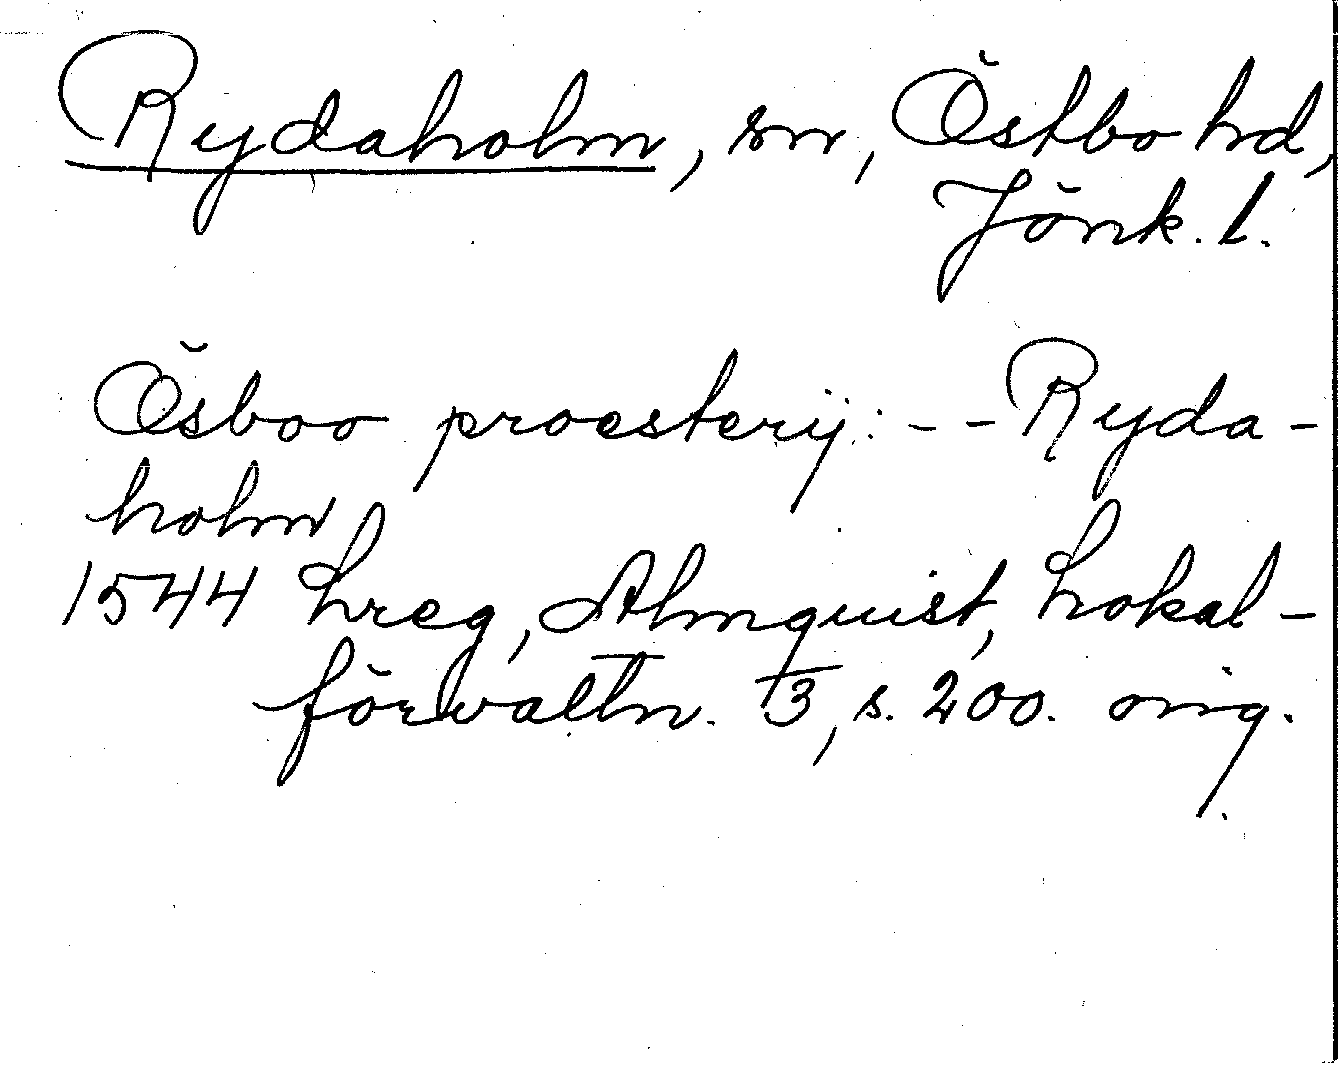 Rydaholm, sn, Östbo hd,
Jönk. l.
Ösboo proesterij: -- Ryda-
holm
1544 Lreg, Almquist, Lokal-
förvaltn. 3, s. 200. orig.